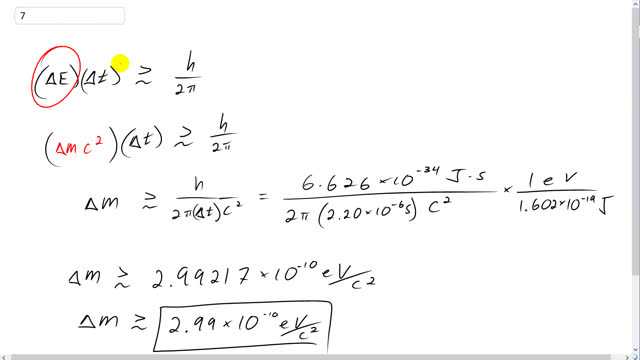 7
(ΔE)(Δt) ≳ h/2π
(Δmc²)(Δt) ≳ h/2π
Δm ≳ h/2π(Δt)c² = 6.626×10⁻³⁴ J·s/2π(2.20×10⁻⁶s) c² × 1eV/1.602×10⁻¹⁹J
Δm ≳ 2.99217×10⁻¹⁰ eV/c²
Δm ≳ 2.99×10⁻¹⁰ eV/c²